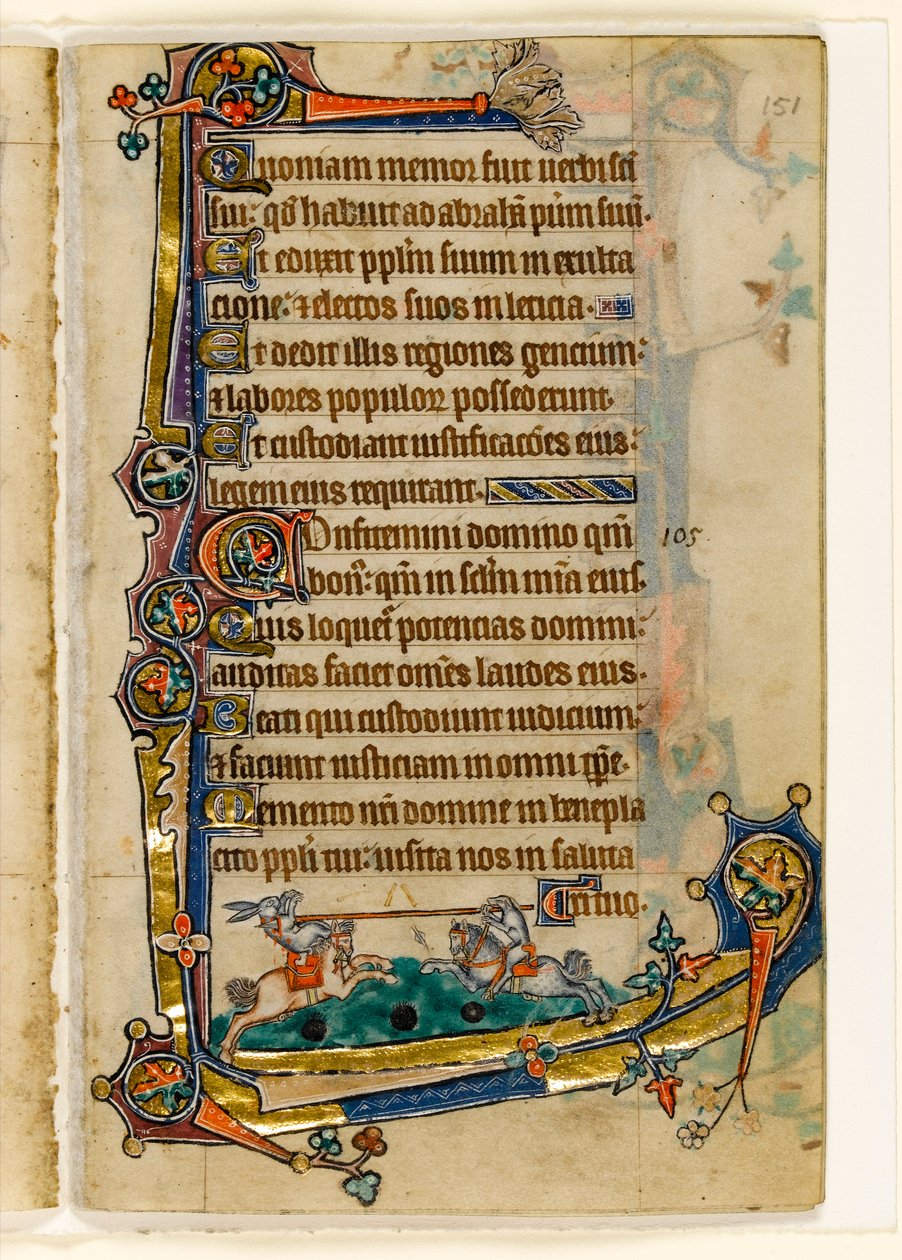 151
Quoniam memor fuit uerbi sc̄i
sui: qd̄ habuit ad abrahā pūm suū.
Et eduxit ppl̄m suum in exulta
cione: ⁊ electos suos in leticia.
Et dedit illis regiones gencium:
⁊ labores populoꝝ possederunt.
Et custodiant iustificacōes eius:
legem eius requirant.
Confitemini domino qm̄ 105.
bon᷒: qm̄ in sc̄lm mīa eius.
Quis loquet᷑ potencias domini:
auditas faciet om̄es laudes eius.
Beati qui custodiunt iudicium:
⁊ faciunt iusticiam in omni tp̄e.
Memento nr̄i domine in benepla
cito ppl̄i tui: uisita nos in saluta
ri tuo.